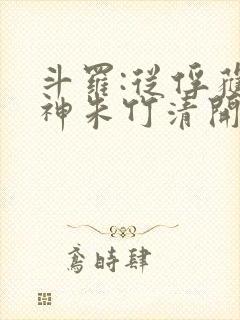 斗羅:從俘獲
神朱竹清開
鳶時肆